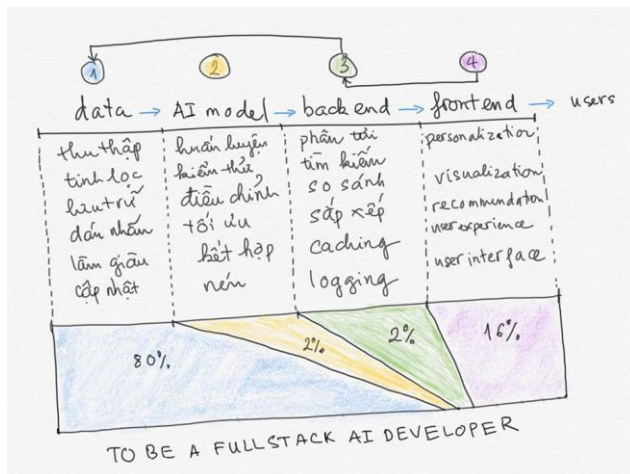 1 2 3 4
data → AI model → backend → frontend → users
thu thập
tinh lọc
lưu trữ
dán nhãn
làm giàu
cập nhật
huấn luyện
kiểm thử
điều chỉnh
tối ưu
kết hợp
nén
phân tải
tìm kiếm
so sánh
sắp xếp
caching
logging
personalization
visualization
recommendation
user experience
user interface
80% 2% 2% 16%
TO BE A FULLSTACK AI DEVELOPER